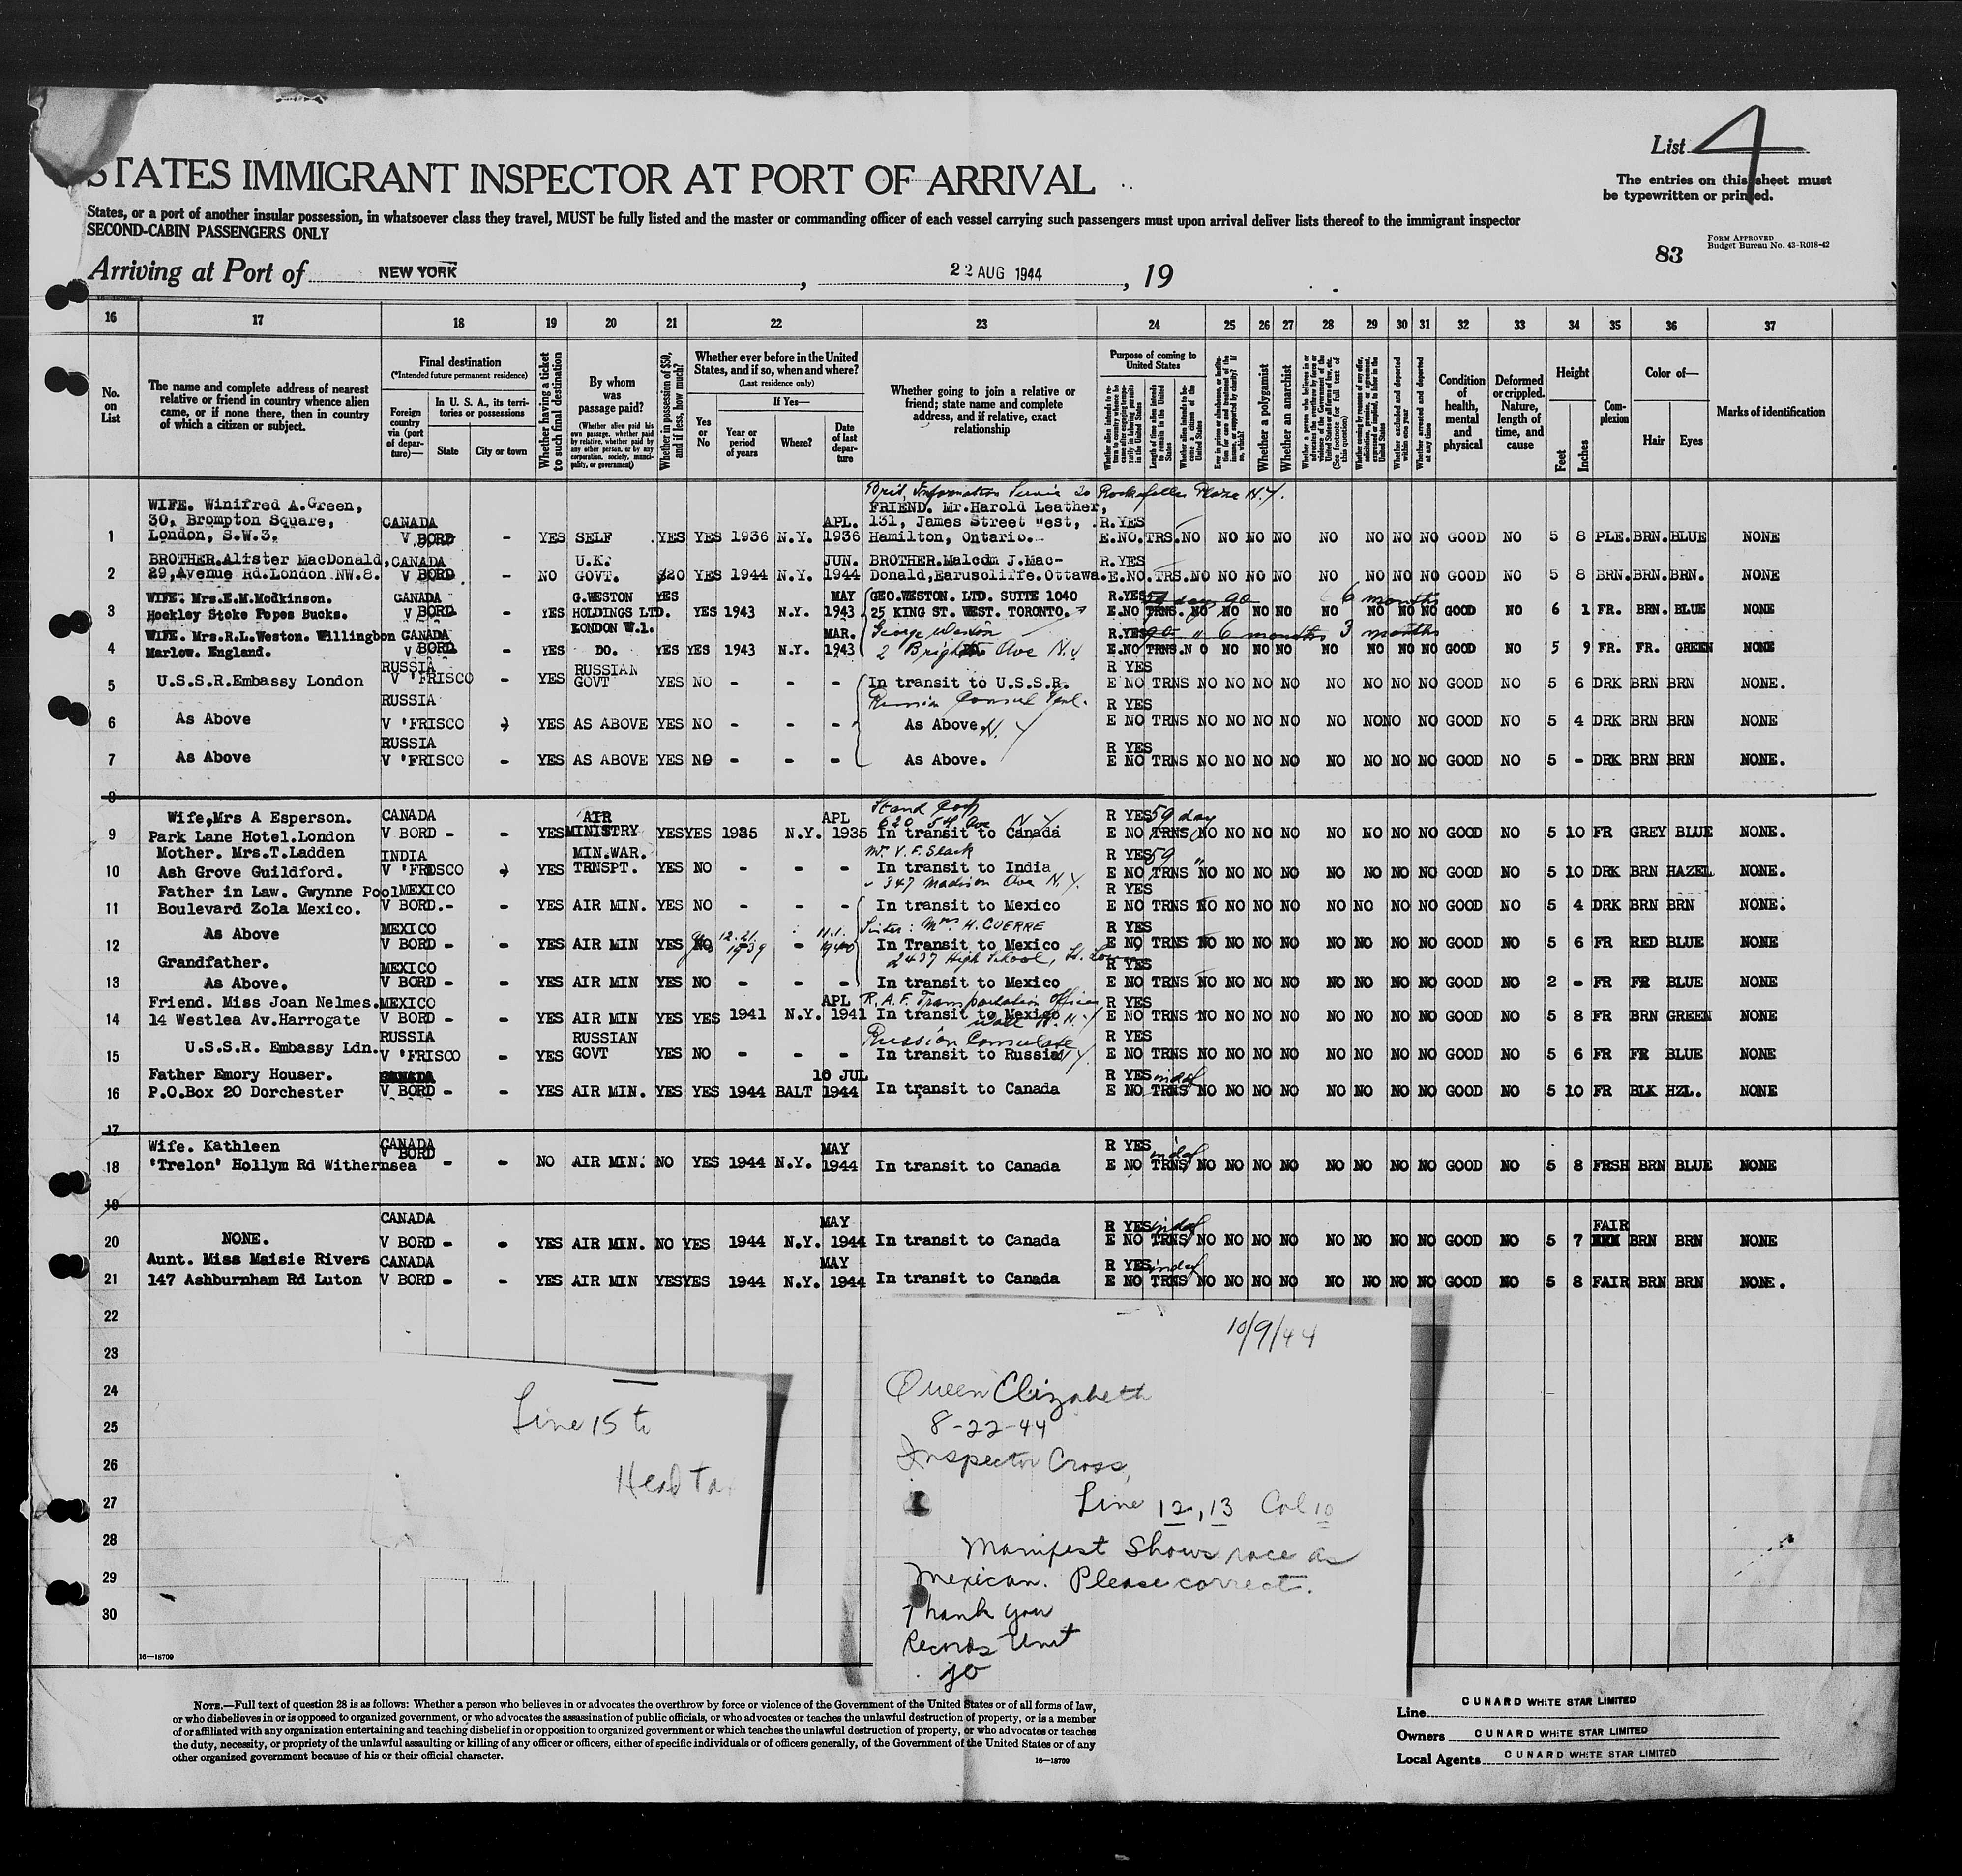 List 4
STATES IMMIGRANT INSPECTOR AT PORT OF ARRIVAL
The entries on this sheet must
be typewritten or printed.
States, or a port of another insular possession, in whatsoever class they travel, MUST be fully listed and the master or commanding officer of each vessel carrying such passengers must upon arrival deliver lists thereof to the immigrant inspector
SECOND-CABIN PASSENGERS ONLY
FORM APPROVED
Budget Bureau No. 43-R018-42
83
Arriving at Port of NEW YORK, 22 AUG 1944, 19
16 17 18 19 20 21 22 23 24 25 26 27 28 29 30 31 32 33 34 35 36 37
No. on List
The name and complete address of nearest relative or friend in country whence alien came, or if none there, then in country of which a citizen or subject.
Final destination
(*Intended future permanent residence)
Foreign country via (port of departure)—
In U. S. A., its territories or possessions
State
City or town
Whether having a ticket to such final destination
By whom was passage paid?
(Whether alien paid his own passage, whether paid by relative, whether paid by any other person, or by any corporation, society, municipality, or government)
Whether in possession of $50, and if less, how much?
Whether ever before in the United States, and if so, when and where?
(Last residence only)
Yes or No
If Yes—
Year or period of years
Where?
Date of last departure
Whether going to join a relative or friend; state name and complete address, and if relative, exact relationship
Purpose of coming to United States
Whether a polygamist
Whether an anarchist
Whether arrested and deported at any time
Condition of health, mental and physical
Deformed or crippled. Nature, length of time, and cause
Height
Feet
Inches
Complexion
Color of—
Hair
Eyes
Marks of identification
Brit. Information Service 30 Rockefeller Plaza N.Y.
1 WIFE. Winifred A.Green, 30, Brompton Square, London, S.W.3. CANADA V BORD - YES SELF YES YES 1936 N.Y. APL. 1936 FRIEND. Mr.Harold Leather, 131, James Street West, Hamilton, Ontario. R.YES E.NO. TRS. NO NO NO NO NO NO NO NO GOOD NO 5 8 PLE. BRN. BLUE NONE
2 BROTHER.Alister MacDonald, 29,Avenue Rd.London NW.8. CANADA V BORD - NO U.K. GOVT. $20 YES 1944 N.Y. JUN. 1944 BROTHER.Malcom J.MacDonald,Earnscliffe.Ottawa. R.YES E.NO. TRS. NO NO NO NO NO NO NO NO GOOD NO 5 8 BRN. BRN. BRN. NONE
3 WIFE. Mrs.E.M.Modkinson. Hockley Stoke Popes Bucks. CANADA V BORD - YES G.WESTON HOLDINGS LTD. LONDON W.1. YES YES 1943 N.Y. MAY 1943 GEO.WESTON. LTD. SUITE 1040 25 KING ST. WEST. TORONTO. R.YES E.NO TRNS. NO NO NO NO NO NO NO NO GOOD NO 6 1 FR. BRN. BLUE NONE
6 months
4 WIFE. Mrs.R.L.Weston. Willingbon Marlow. England. CANADA V BORD - YES DO. YES YES 1943 N.Y. MAR. 1943 George Weston 2 Brighton Ave N.Y R.YES E.NO TRNS. NO NO NO NO NO NO NO NO GOOD NO 5 9 FR. FR. GREEN NONE
6 months 3 months
5 U.S.S.R.Embassy London RUSSIA V 'FRISCO - YES RUSSIAN GOVT YES NO - - - In transit to U.S.S.R. Russian Consul Genl. R YES E NO TRNS NO NO NO NO NO NO NO NO GOOD NO 5 6 DRK BRN BRN NONE.
6 As Above RUSSIA V 'FRISCO YES AS ABOVE YES NO - - - As Above N.Y R YES E NO TRNS NO NO NO NO NO NO NO NO GOOD NO 5 4 DRK BRN BRN NONE
7 As Above RUSSIA V 'FRISCO - YES AS ABOVE YES NO - - - As Above. R YES E NO TRNS NO NO NO NO NO NO NO NO GOOD NO 5 - DRK BRN BRN NONE.
8
9 Wife,Mrs A Esperson. Park Lane Hotel.London CANADA V BORD - - YES AIR MINISTRY YES YES 1935 N.Y. APL 1935 620 5th Ave N.Y In transit to Canada R YES 59 day E NO TRNS NO NO NO NO NO NO NO NO GOOD NO 5 10 FR GREY BLUE NONE.
10 Mother. Mrs.T.Ladden Ash Grove Guildford. INDIA V 'FRISCO YES MIN.WAR. TRNSPT. YES NO - - - Mr. V.F. Slack In transit to India 347 Madison Ave N.Y. R YES 59 " E NO TRNS NO NO NO NO NO NO NO NO GOOD NO 5 10 DRK BRN HAZEL NONE.
11 Father in Law. Gwynne Pool Boulevard Zola Mexico. MEXICO V BORD. - - YES AIR MIN. YES NO - - - In transit to Mexico R YES E NO TRNS NO NO NO NO NO NO NO NO GOOD NO 5 4 DRK BRN BRN NONE.
12 As Above MEXICO V BORD - - YES AIR MIN YES NO yes 12.21. 1939 - 11.1. 1940 Sister: Mrs H. GUERRE In Transit to Mexico 2437 High School, St. R YES E NO TRNS NO NO NO NO NO NO NO NO GOOD NO 5 6 FR RED BLUE NONE
13 Grandfather. As Above. MEXICO V BORD - - YES AIR MIN YES NO - - - In transit to Mexico R YES E NO TRNS NO NO NO NO NO NO NO NO GOOD NO 2 - FR FR BLUE NONE
14 Friend. Miss Joan Nelmes. 14 Westlea Av.Harrogate MEXICO V BORD - - YES AIR MIN YES YES 1941 N.Y. APL 1941 R.A.F. Transportation Office In transit to Mexico Wall St. N.Y R YES E NO TRNS NO NO NO NO NO NO NO NO GOOD NO 5 8 FR BRN GREEN NONE
15 U.S.S.R. Embassy Ldn. RUSSIA V 'FRISCO - YES RUSSIAN GOVT YES NO - - - Russian Consulate In transit to Russia N.Y. R YES E NO TRNS NO NO NO NO NO NO NO NO GOOD NO 5 6 FR FR BLUE NONE
16 Father Emory Houser. P.O.Box 20 Dorchester CANADA V BORD - - YES AIR MIN. YES YES 1944 BALT 10 JUL 1944 In transit to Canada R YES indef E NO TRNS NO NO NO NO NO NO NO NO GOOD NO 5 10 FR BLK HZL. NONE
17
18 Wife. Kathleen 'Trelon' Hollym Rd Withernsea CANADA V BORD - - NO AIR MIN. NO YES 1944 N.Y. MAY 1944 In transit to Canada R YES indef E NO TRNS NO NO NO NO NO NO NO NO GOOD NO 5 8 FRSH BRN BLUE NONE
19
20 NONE. CANADA V BORD - - YES AIR MIN. NO YES 1944 N.Y. MAY 1944 In transit to Canada R YES indef E NO TRNS NO NO NO NO NO NO NO NO GOOD NO 5 7 FAIR BRN BRN NONE
21 Aunt. Miss Maisie Rivers 147 Ashburnham Rd Luton CANADA V BORD - - YES AIR MIN YES YES 1944 N.Y. MAY 1944 In transit to Canada R YES indef E NO TRNS NO NO NO NO NO NO NO NO GOOD NO 5 8 FAIR BRN BRN NONE.
22
23
24
25
26
27
28
29
30
Line 15 to
Head Ta
10/9/44
Queen Elizabeth
8-22-44
Inspector Cross,
Line 12, 13 Col 10
Manifest shows race as
Mexican. Please correct.
Thank you
Records Unit
jo
16—18709
NOTE.—Full text of question 28 is as follows: Whether a person who believes in or advocates the overthrow by force or violence of the Government of the United States or of all forms of law,
or who disbelieves in or is opposed to organized government, or who advocates the assassination of public officials, or who advocates or teaches the unlawful destruction of property, or is a member
of or affiliated with any organization entertaining and teaching disbelief in or opposition to organized government or which teaches the unlawful destruction of property, or who advocates or teaches
the duty, necessity, or propriety of the unlawful assaulting or killing of any officer or officers, either of specific individuals or of officers generally, of the Government of the United States or of any
other organized government because of his or their official character.
16—18709
Line CUNARD WHITE STAR LIMITED
Owners CUNARD WHITE STAR LIMITED
Local Agents CUNARD WHITE STAR LIMITED